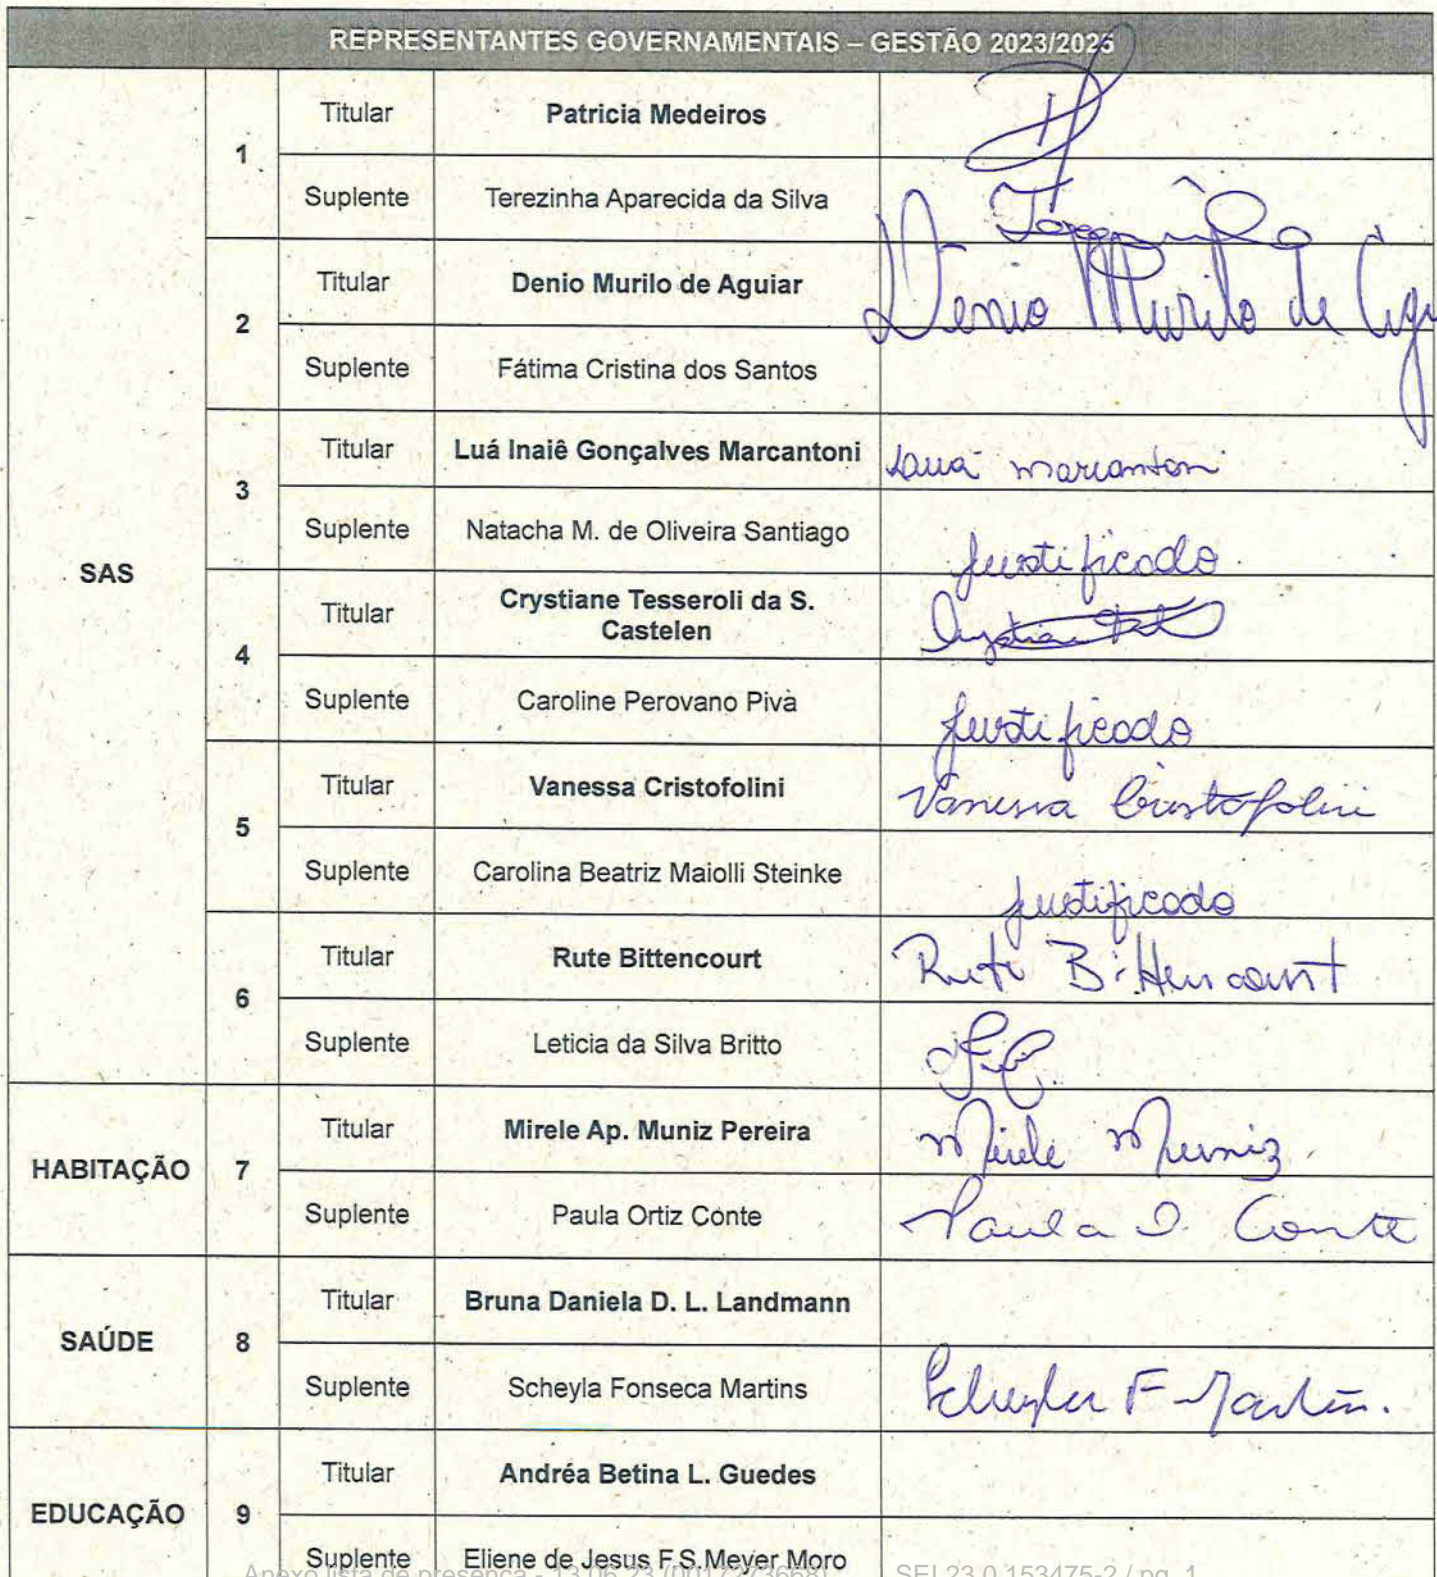 REPRESENTANTES GOVERNAMENTAIS – GESTÃO 2023/2025
SAS
1
Titular
Patricia Medeiros
Suplente
Terezinha Aparecida da Silva
2
Titular
Denio Murilo de Aguiar
Denio Murilo de
Suplente
Fátima Cristina dos Santos
3
Titular
Luá Inaiê Gonçalves Marcantoni
Suplente
Natacha M. de Oliveira Santiago
justificado
4
Titular
Crystiane Tesseroli da S.
Castelen
Suplente
Caroline Perovano Piva
justificado
5
Titular
Vanessa Cristofolini
Vanessa Cristofolini
Suplente
Carolina Beatriz Maiolli Steinke
justificado
6
Titular
Rute Bittencourt
Rute Bittencourt
Suplente
Leticia da Silva Britto
HABITAÇÃO
7
Titular
Mirele Ap. Muniz Pereira
Mirele Muniz
Suplente
Paula Ortiz Conte
Paula O. Conte
SAÚDE
8
Titular
Bruna Daniela D. L. Landmann
Suplente
Scheyla Fonseca Martins
Scheyla F Martins.
EDUCAÇÃO
9
Titular
Andréa Betina L. Guedes
Suplente
Eliene de Jesus F.S.Meyer Moro
Anexo lista de presença - 13.06.23 (0017273668) SEI 23.0.153475-2 / pg. 1